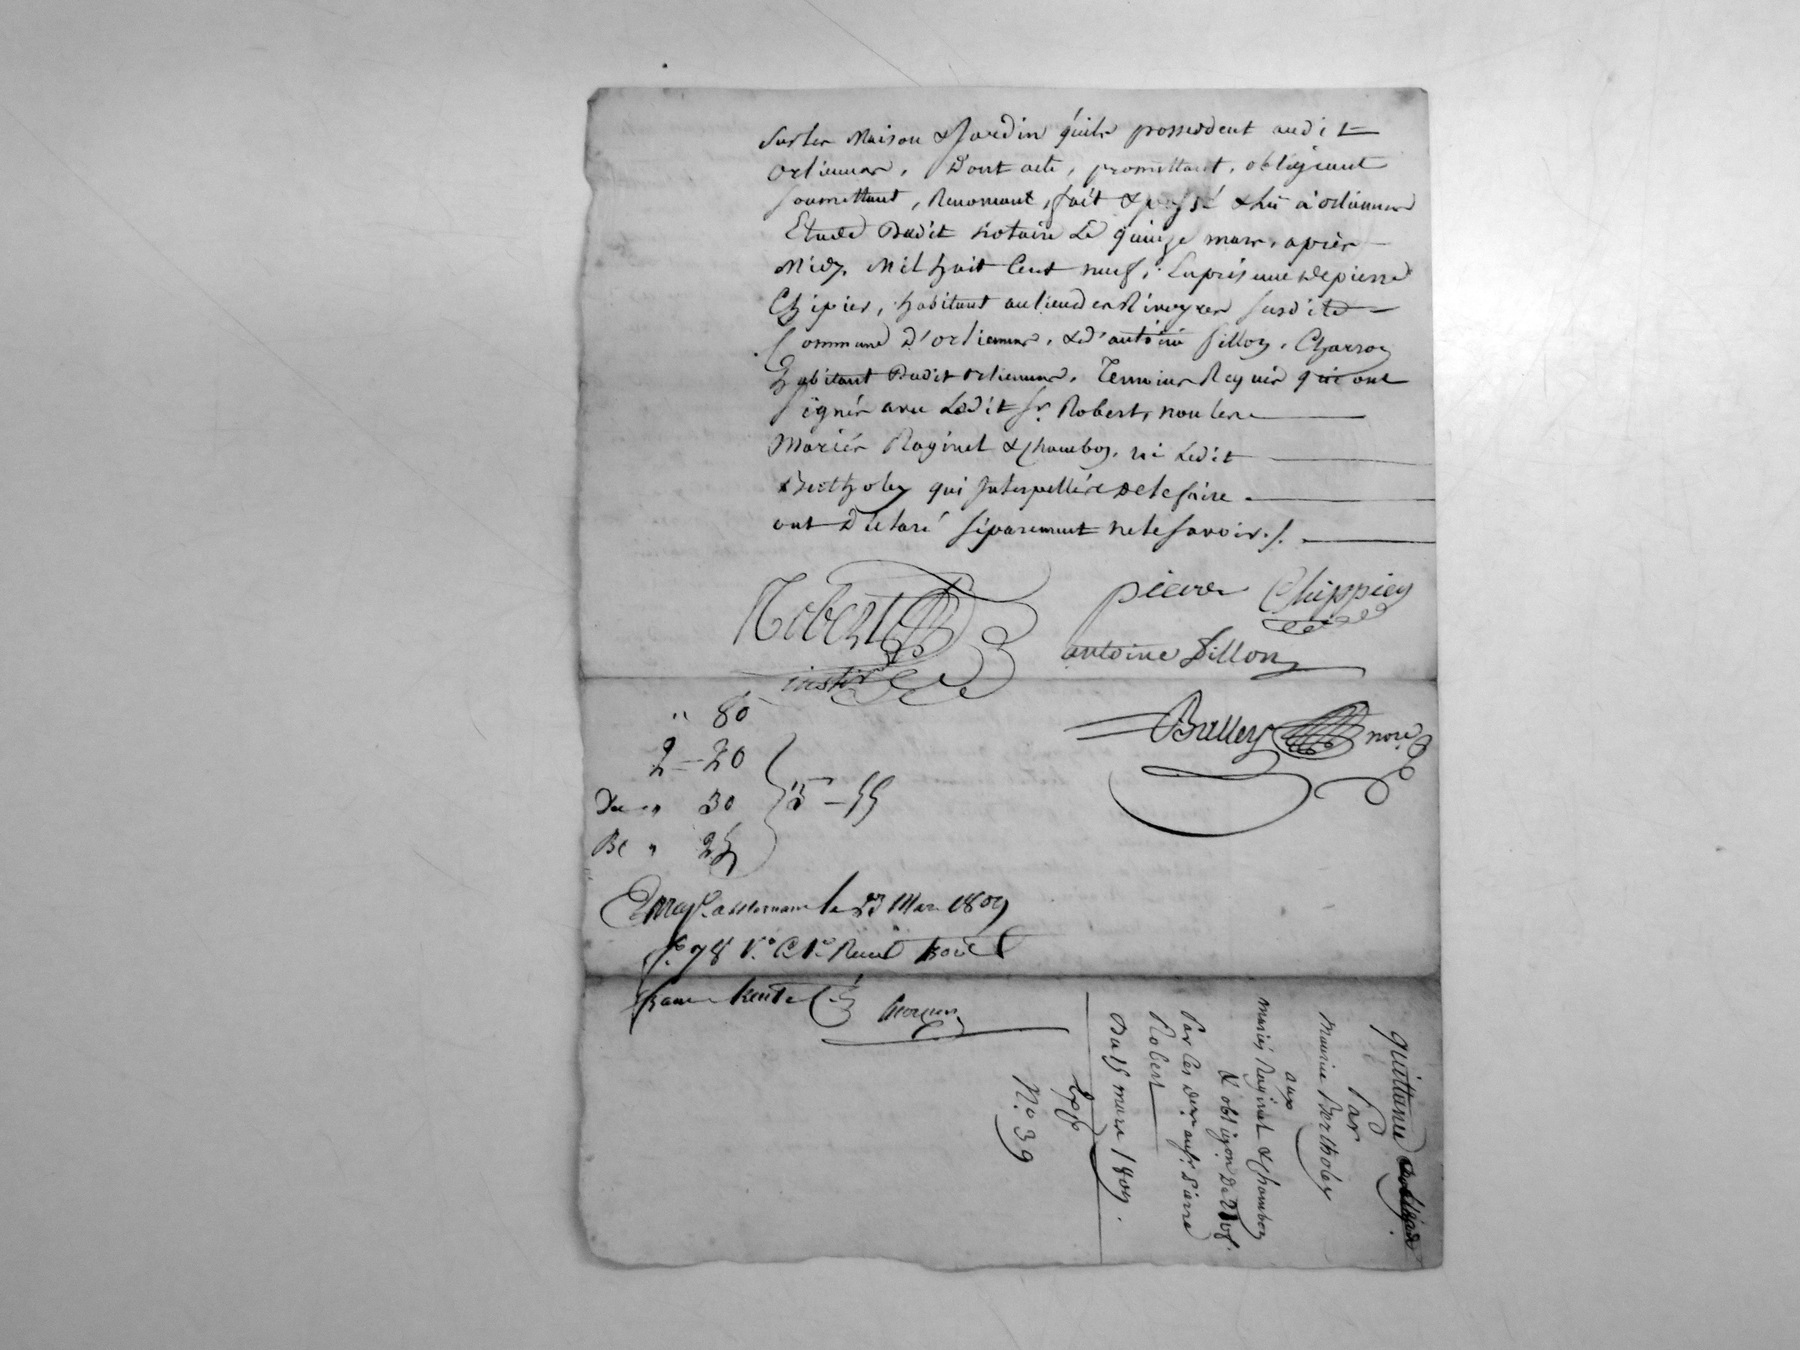 sur les maison & jardin qu'ils possedent audit
orliennas, Dont acte, promettant, obligeant
soumettant, Renoncant, fait & passé & lu à orliennas
Etude Dudit Notaire Le quinze mars, après
Midy, Mil huit Cent neuf, En présence de pierre
Chipier, habitant au lieu des Rivoyres susdite
Commune D'orliennas, & d'antoine fillon, Charron
habitant Dudit orliennas, Temoins Requis qui ont
signés avec Ledit sr. Robert, non les
Mariés Raginel & Chambon, ni Ledit
Bertholey qui Interpellés De le faire
ont Déclaré séparement ne le savoir./.
Robert
pierre Chippier
antoine fillon
Bulley nore
" 80
2 = 20
" 30
" 25
5 - 55
le 23 Mars 1809
fo. 78 Vo. C 1e. Recu trois
quittance
Par
Maurice Bertholey
aux
Mariés Raginel & Chambon
& obligon De
Par Ces Der. au sr. Pierre
Robert
Du 15 mars 1809.
No. 39